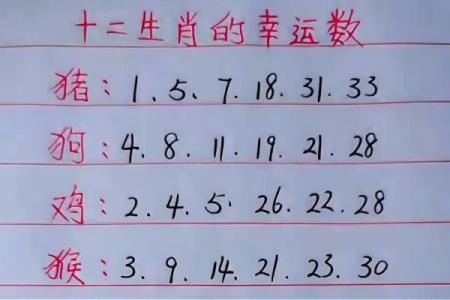 十二生肖的幸运数
猪：1.5.7.18.31.33
狗：4.8.11.19.21.28
鸡：2.4.5.26.22.28
猴：3.9.14.21.23.30